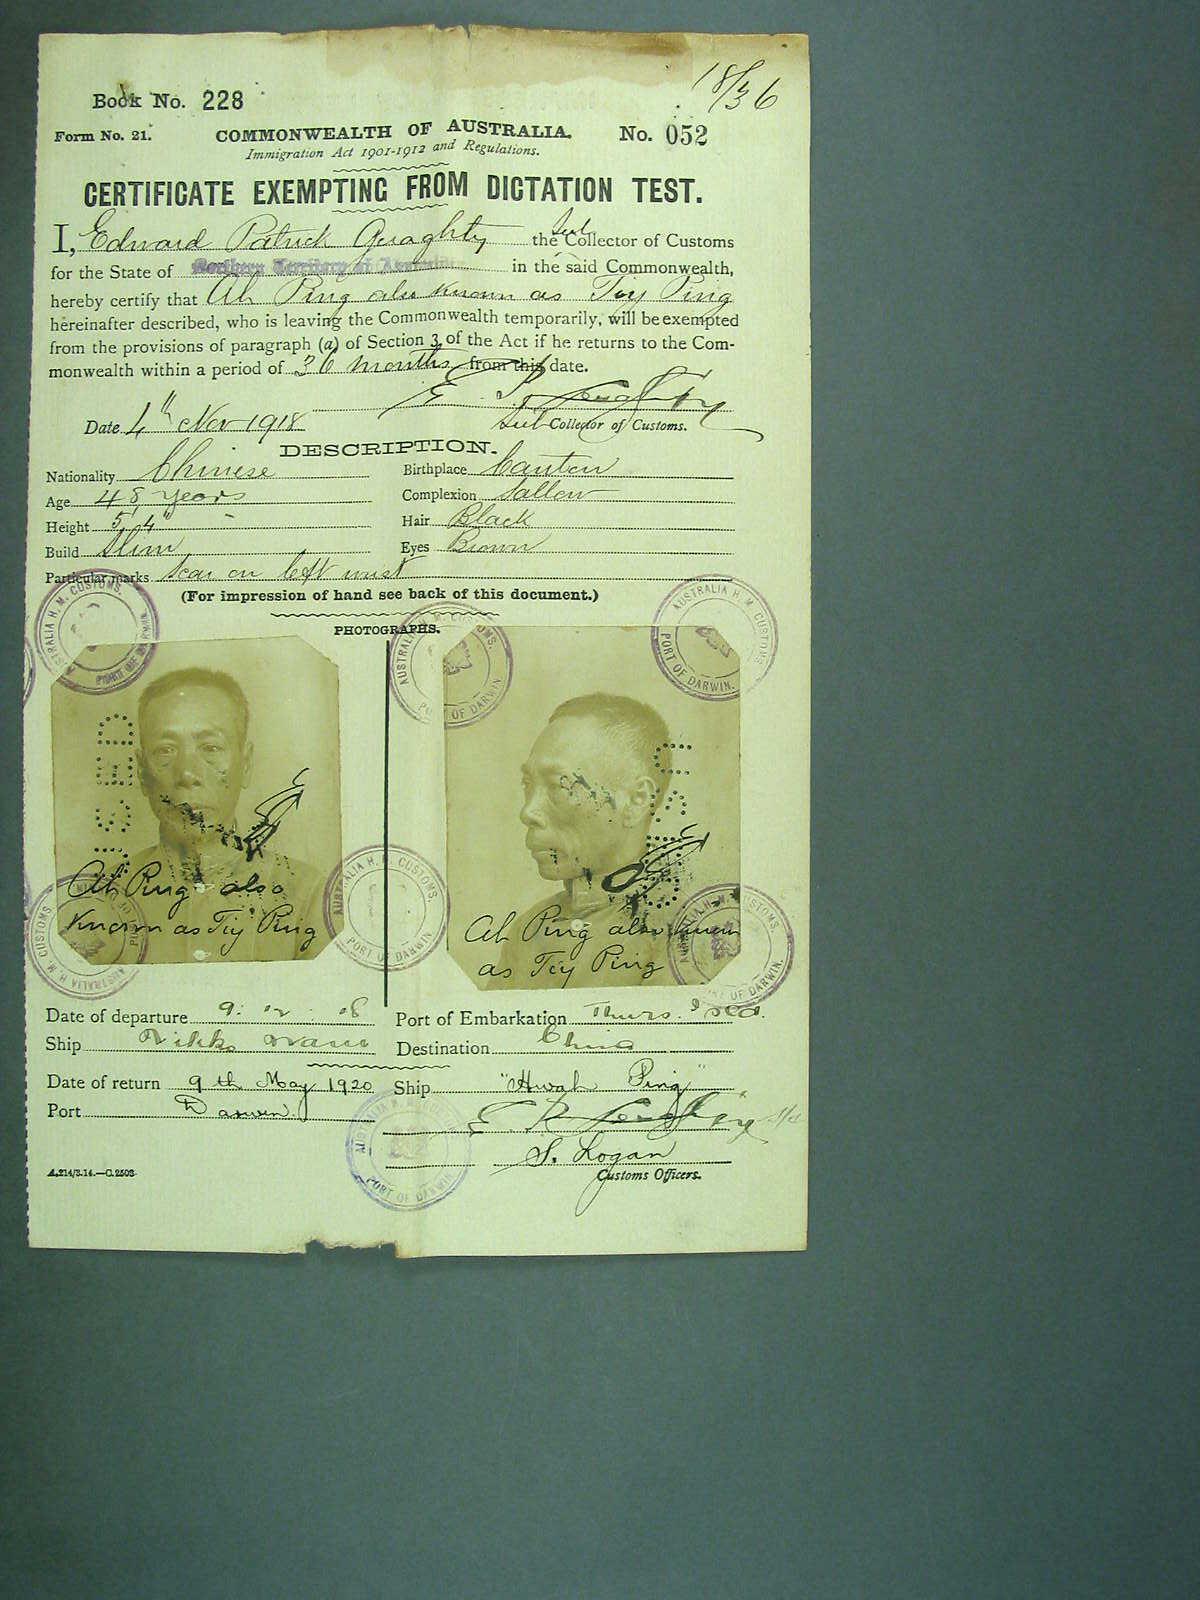 18/36
Book No. 228
Form No. 21. COMMONWEALTH OF AUSTRALIA. No. 052
Immigration Act 1901-1912 and Regulations.
CERTIFICATE EXEMPTING FROM DICTATION TEST.
I, Edward Patrick Geraghty the Sub Collector of Customs
for the State of Northern Territory of Australia in the said Commonwealth,
hereby certify that Ah Ping also known as Tiy Ping
hereinafter described, who is leaving the Commonwealth temporarily, will be exempted
from the provisions of paragraph (a) of Section 3 of the Act if he returns to the Com-
monwealth within a period of 36 months from this date.
Date 4th Nov 1918 Sub Collector of Customs.
DESCRIPTION.
Nationality Chinese Birthplace Canton
Age 48 years Complexion Sallow
Height 5' 4" Hair Black
Build Slim Eyes Brown
Particular marks Scar on left wrist
(For impression of hand see back of this document.)
PHOTOGRAPHS.
AUSTRALIA H. M. CUSTOMS. PORT OF DARWIN.
AUSTRALIA H. M. CUSTOMS. PORT OF DARWIN.
AUSTRALIA H. M. CUSTOMS. PORT OF DARWIN.
Ah Ping also
known as Tiy Ping
Ah Ping also known
as Tiy Ping
AUSTRALIA H. M. CUSTOMS PORT OF DARWIN
AUSTRALIA H. M. CUSTOMS. PORT OF DARWIN.
AUSTRALIA H. M. CUSTOMS. PORT OF DARWIN.
Date of departure 9. 12. 18 Port of Embarkation Thurs. Isld.
Ship Nikko Maru Destination China
Date of return 9th May 1920 Ship "Hwah Ping"
Port Darwin
S. Logan
A.214/3.14.—C.2503. Customs Officers.
PORT OF DARWIN